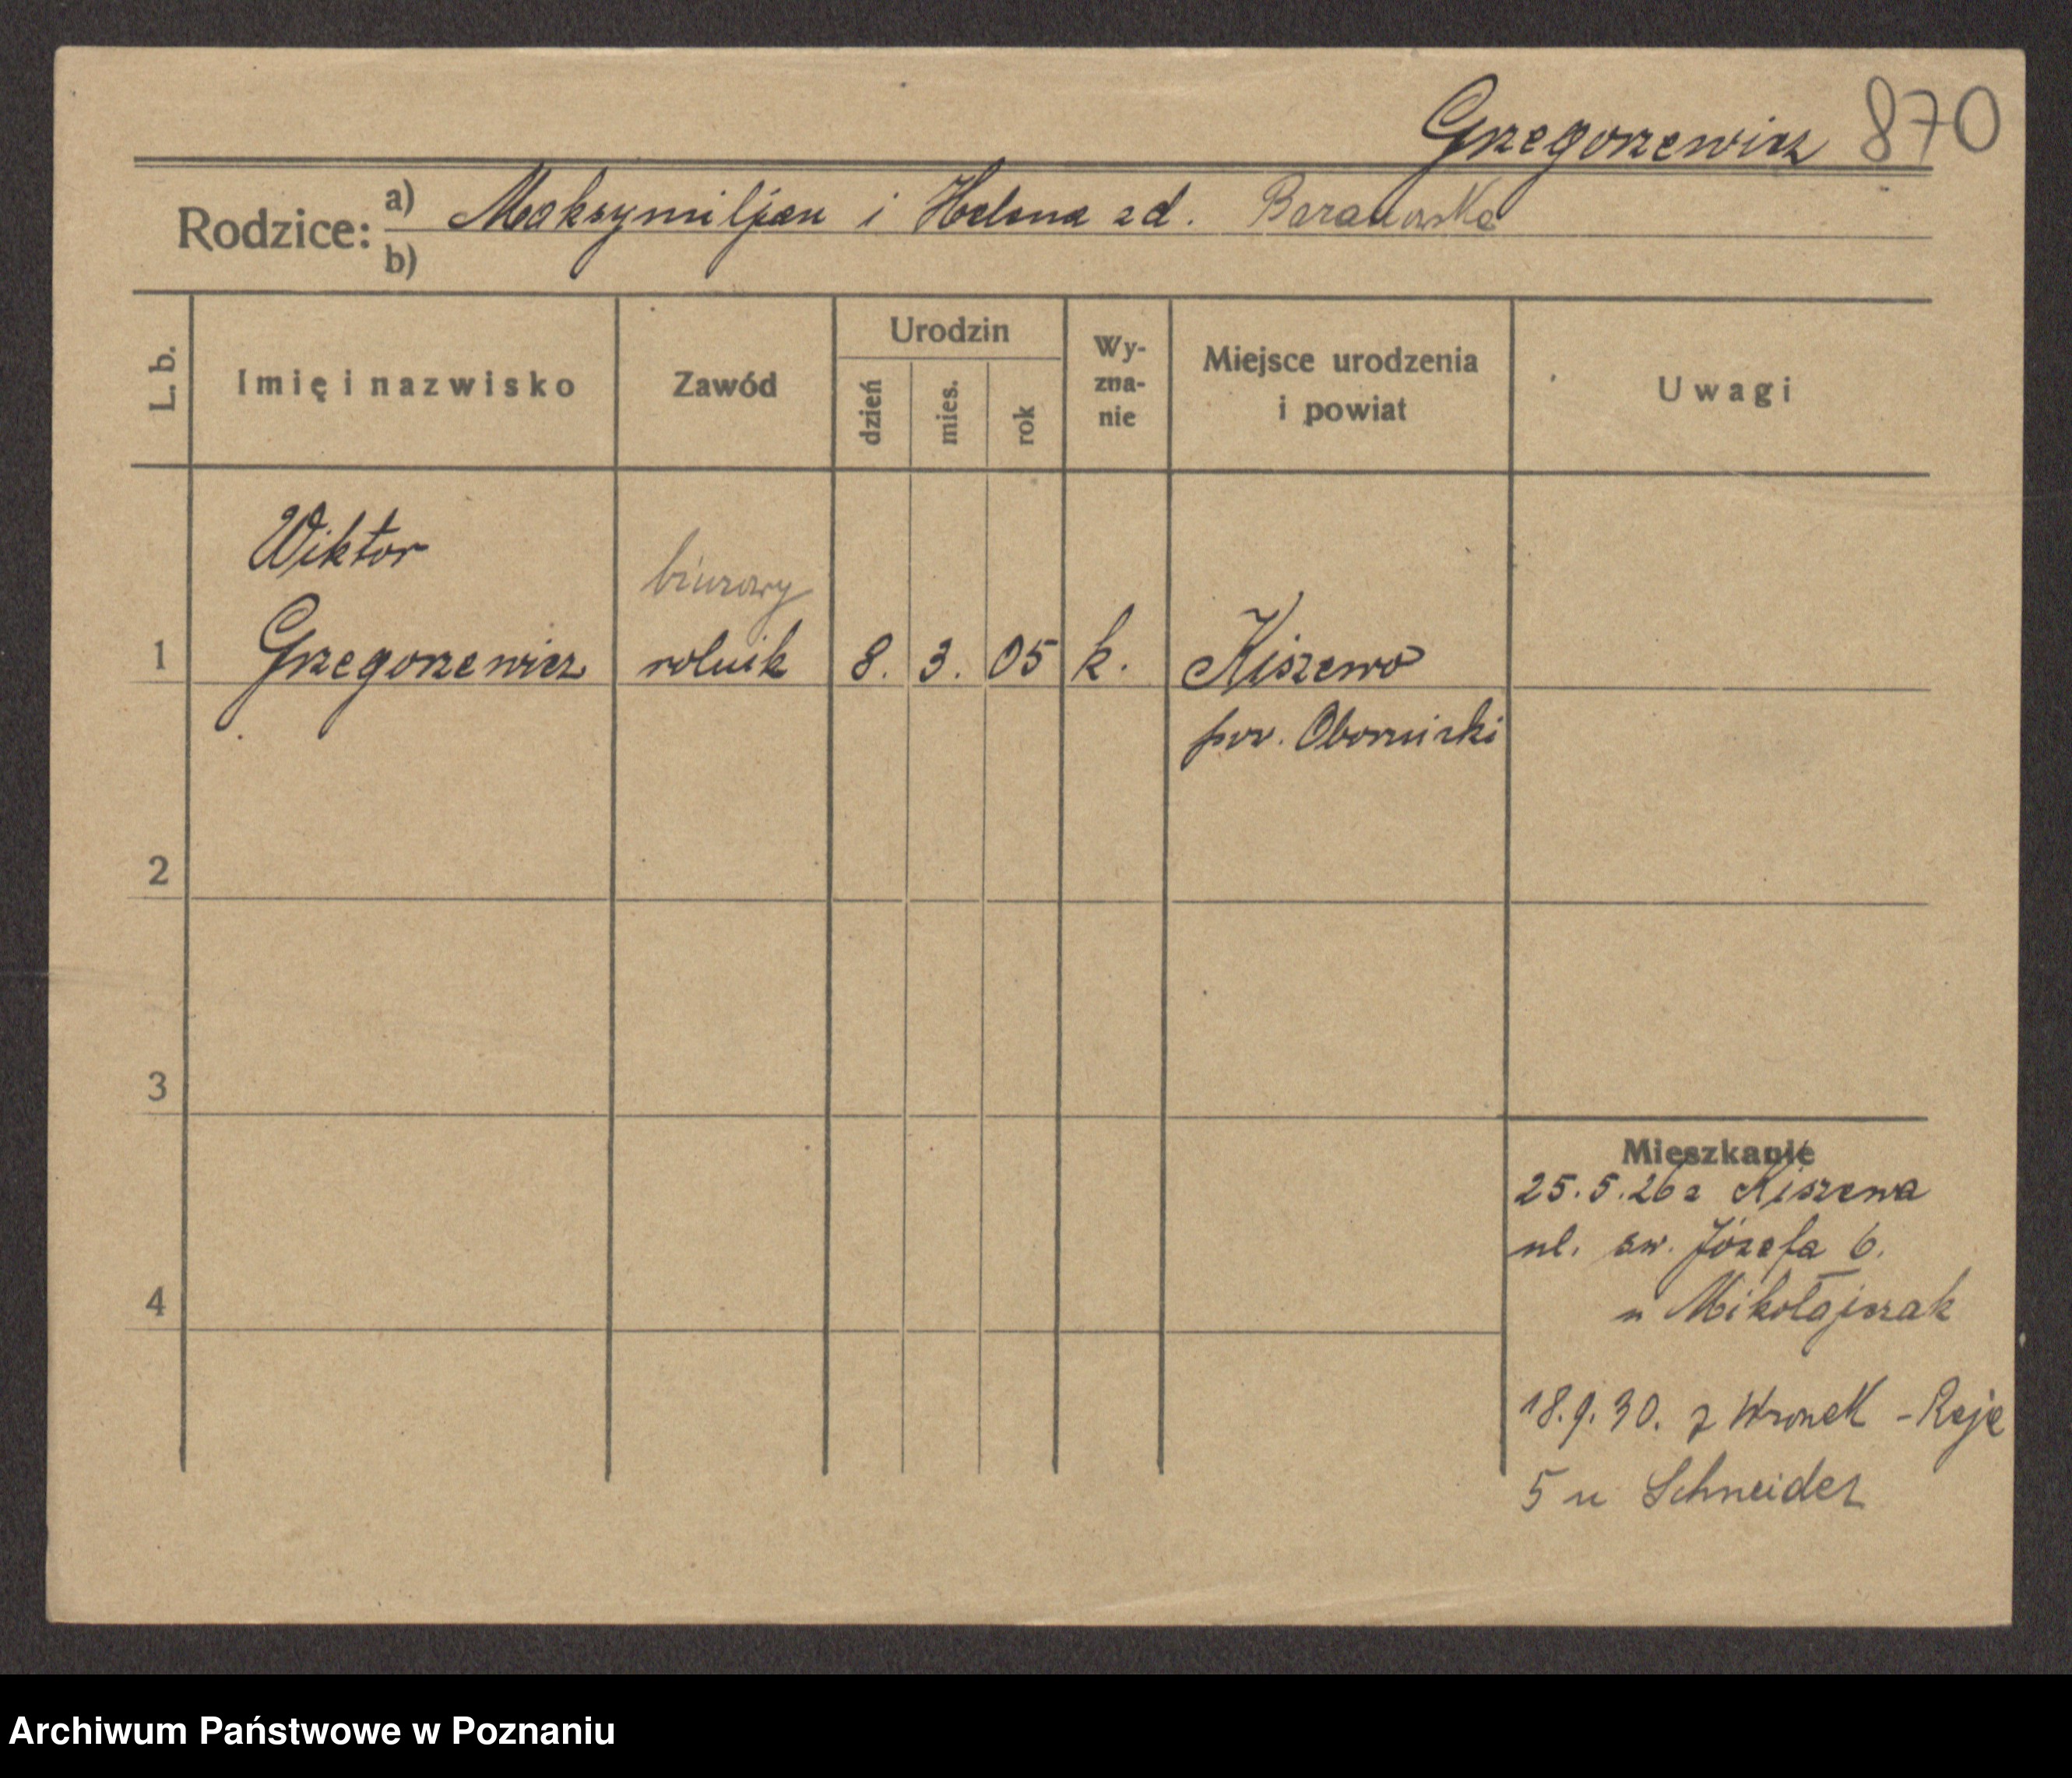 Grzegorzewicz 870
Rodzice: a) Maksymiljan i Helena zd. Baranowska
b)
L. b.
Imię i nazwisko
Zawód
Urodzin
dzień
mies.
rok
Wy-
zna-
nie
Miejsce urodzenia
i powiat
Uwagi
Wiktor
biurowy
1 Grzegorzewicz rolnik 8. 3. 05 k. Kiszewo
pow. Obornicki
2
3
Mieszkanie
25.5.26 z Kiszewa
ul. św. Józefa 6.
4
u Mikołajczak
18.9.30. z Wronek - Reja
5 u Schneider
Archiwum Państwowe w Poznaniu